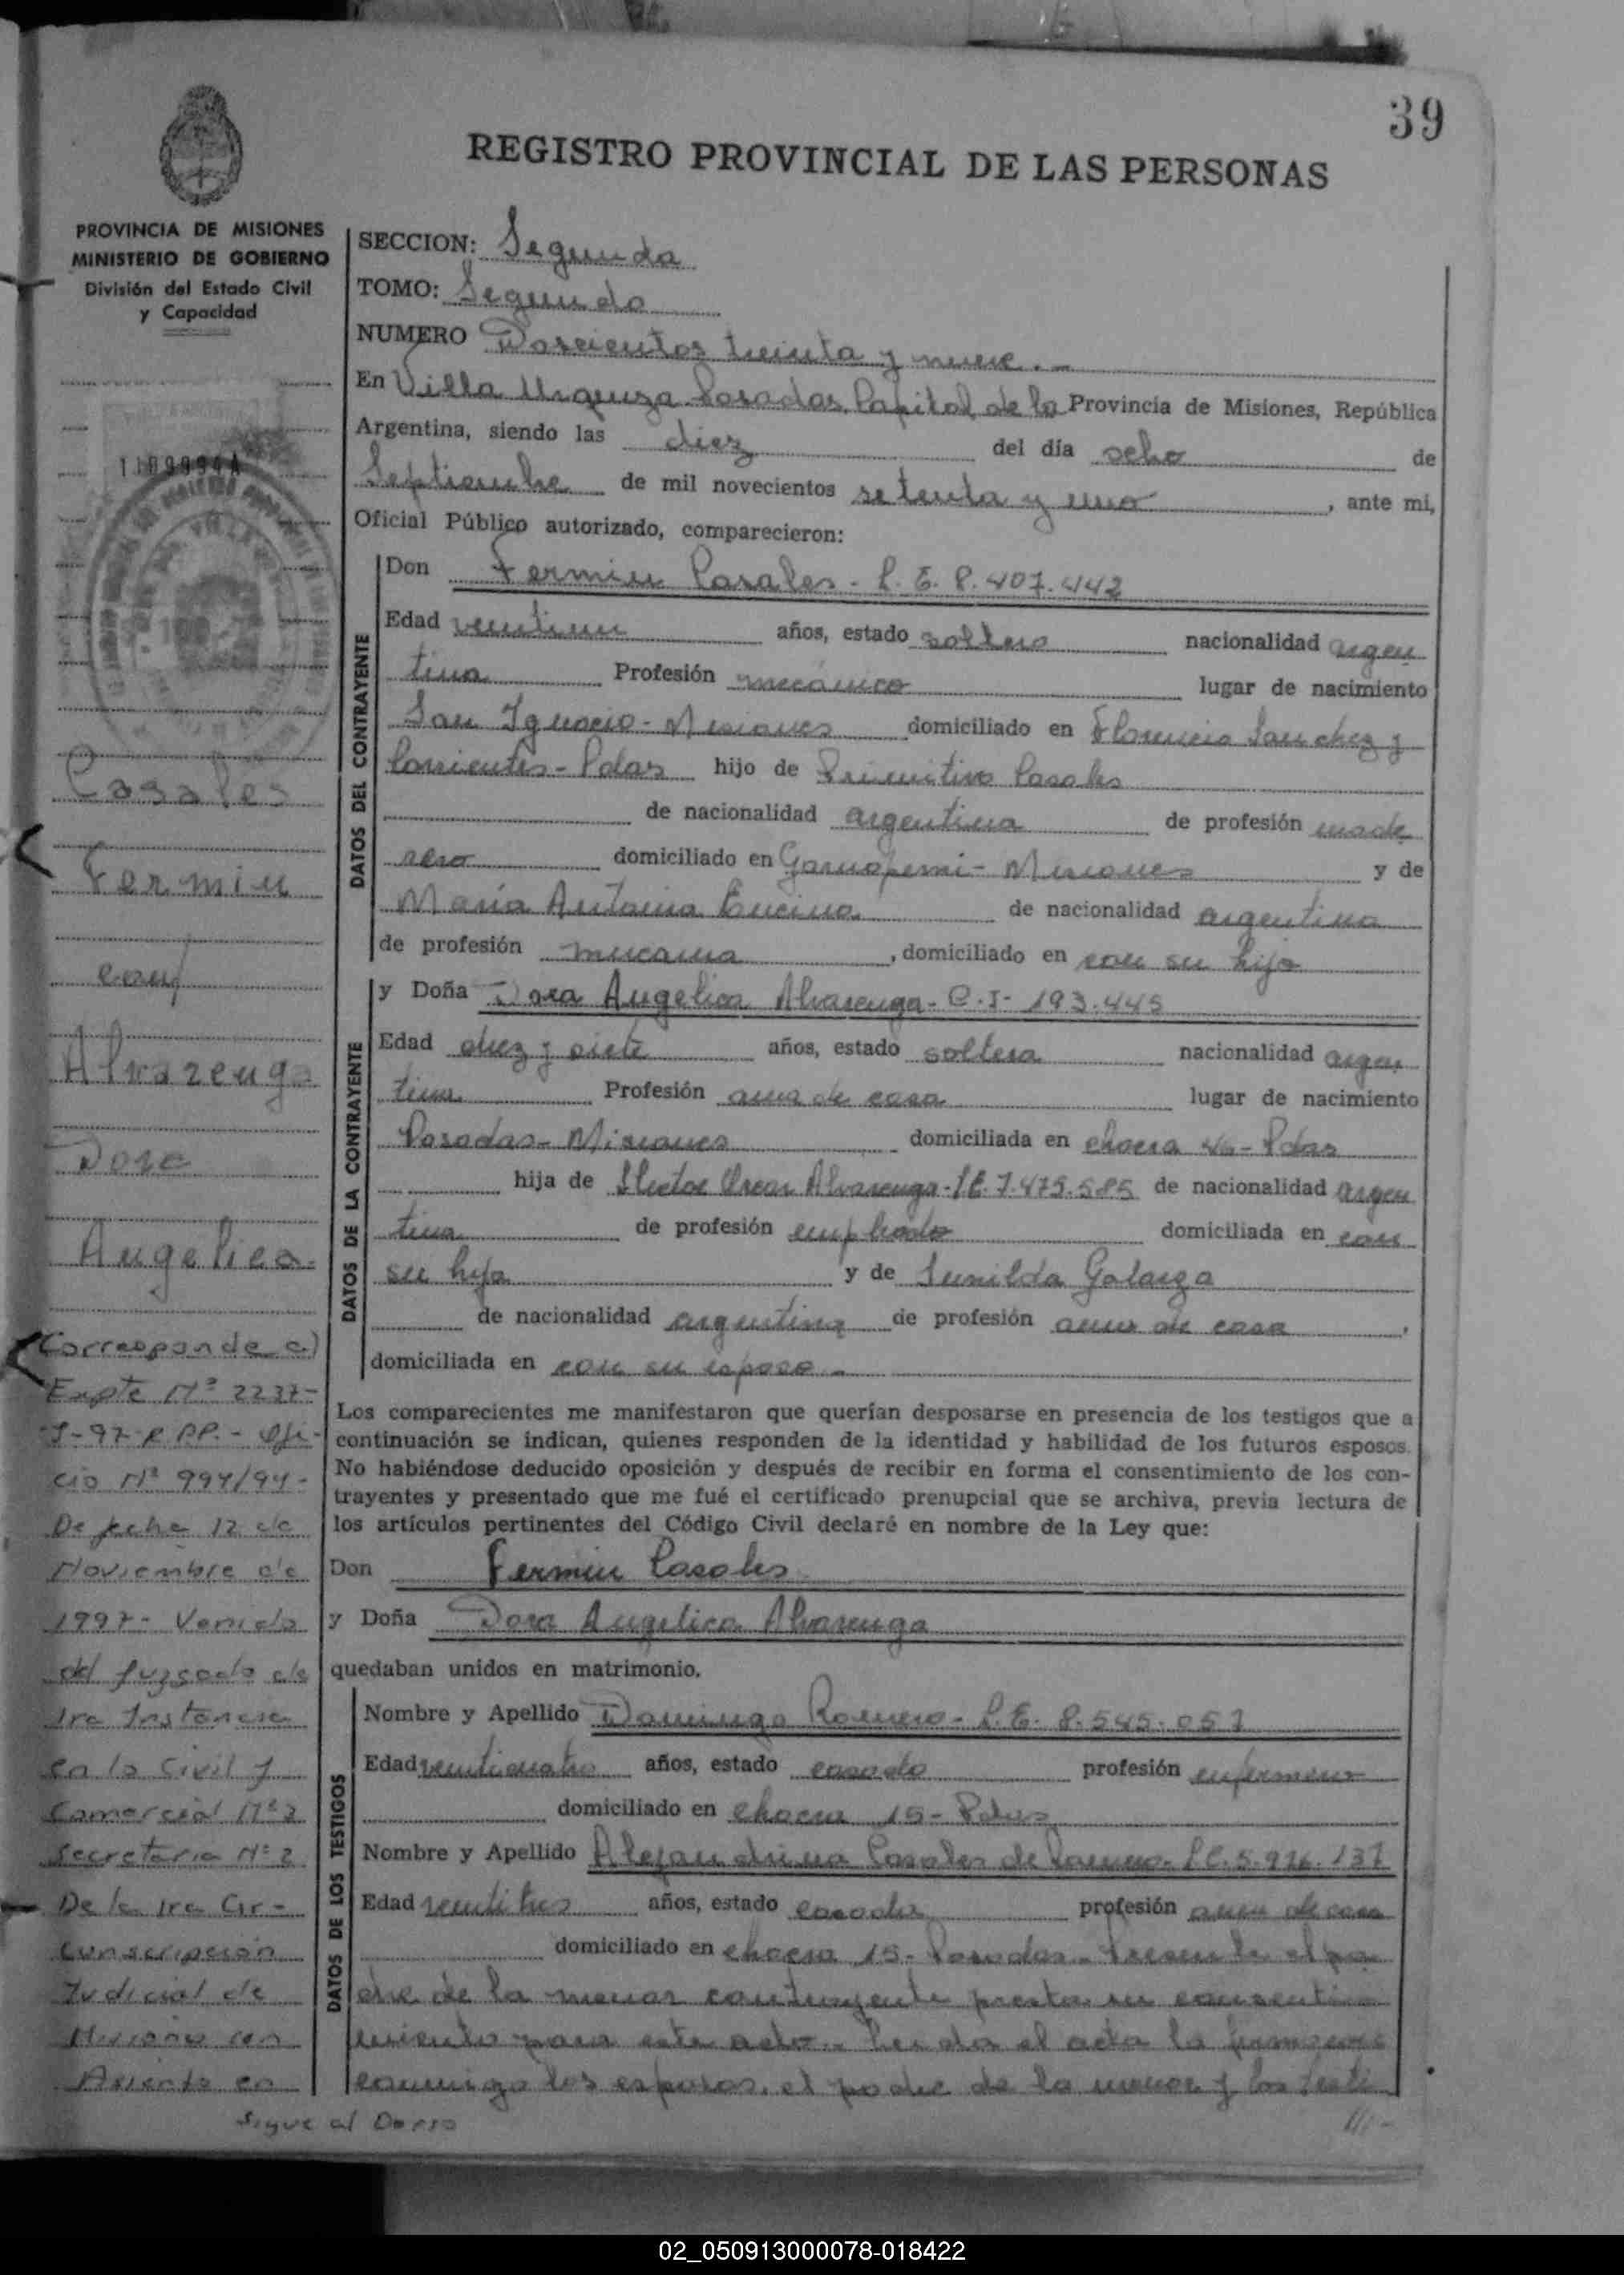 39
REGISTRO PROVINCIAL DE LAS PERSONAS
PROVINCIA DE MISIONES
MINISTERIO DE GOBIERNO
División del Estado Civil
y Capacidad
SECCION: Segunda
TOMO: Segundo
NUMERO Doscientos treinta y nueve.-
En Villa Urquiza Posadas, Capital de la Provincia de Misiones, República
Argentina, siendo las diez del día ocho de
Septiembre de mil novecientos setenta y uno, ante mi,
Oficial Público autorizado, comparecieron:
DATOS DEL CONTRAYENTE
Don Fermin Casales - L.E. 8.407.442
Edad veintiun años, estado soltero nacionalidad argen
tina Profesión mecánico lugar de nacimiento
San Ignacio - Misiones domiciliado en Florencio Sanchez y
Corrientes - Pdas hijo de Primitivo Casales
de nacionalidad argentina de profesión made
rero domiciliado en Garuapemi - Misiones y de
Maria Antonia Encina de nacionalidad argentina
de profesión mucama, domiciliado en con su hijo
DATOS DE LA CONTRAYENTE
y Doña Dora Angelica Alvarenga - C.I - 193.445
Edad diez y siete años, estado soltera nacionalidad argen
tina Profesión ama de casa lugar de nacimiento
Posadas - Misiones domiciliada en chacra 46 - Pdas
hija de Hector Oscar Alvarenga - L.E. 7.475.585 de nacionalidad argen
tina de profesión empleado domiciliada en con
su hija y de Lunilda Galarza
de nacionalidad argentina de profesión ama de casa,
domiciliada en con su esposo.-
Los comparecientes me manifestaron que querían desposarse en presencia de los testigos que a
continuación se indican, quienes responden de la identidad y habilidad de los futuros esposos.
No habiéndose deducido oposición y después de recibir en forma el consentimiento de los con-
trayentes y presentado que me fué el certificado prenupcial que se archiva, previa lectura de
los artículos pertinentes del Código Civil declaré en nombre de la Ley que:
Don Fermin Casales
y Doña Dora Angelica Alvarenga
quedaban unidos en matrimonio.
DATOS DE LOS TESTIGOS
Nombre y Apellido Domingo Romero - L.E. 8.545.057
Edad veinticuatro años, estado casado profesión enfermero
domiciliado en chacra 15 - Pdas
Nombre y Apellido Alejandrina Casales de Romero - L.C. 5.976.137
Edad veintitres años, estado casada profesión ama de casa
domiciliado en chacra 15 - Posadas - Presente el pa
dre de la menor contrayente presta su consenti
miento para este acto.- Leida el acta la firman con
conmigo los esposos, el padre de la menor y los testi
///-
Casales
Fermin
con/
Alvarenga
Dora
Angelica.
Corresponde a)
Expte Nº 2237-
J-97-R.PP.- Ofi-
cio Nº 997/97-
De fecha 12 de
Noviembre de
1997- Venido
del Juzgado de
1ra Instancia
en lo Civil y
Comercial Nº 2
Secretaria Nº 2
De la 1ra Cir-
cunscripción
Judicial de
Misiones con
Asiento en
Sigue al Dorso
02_050913000078-018422